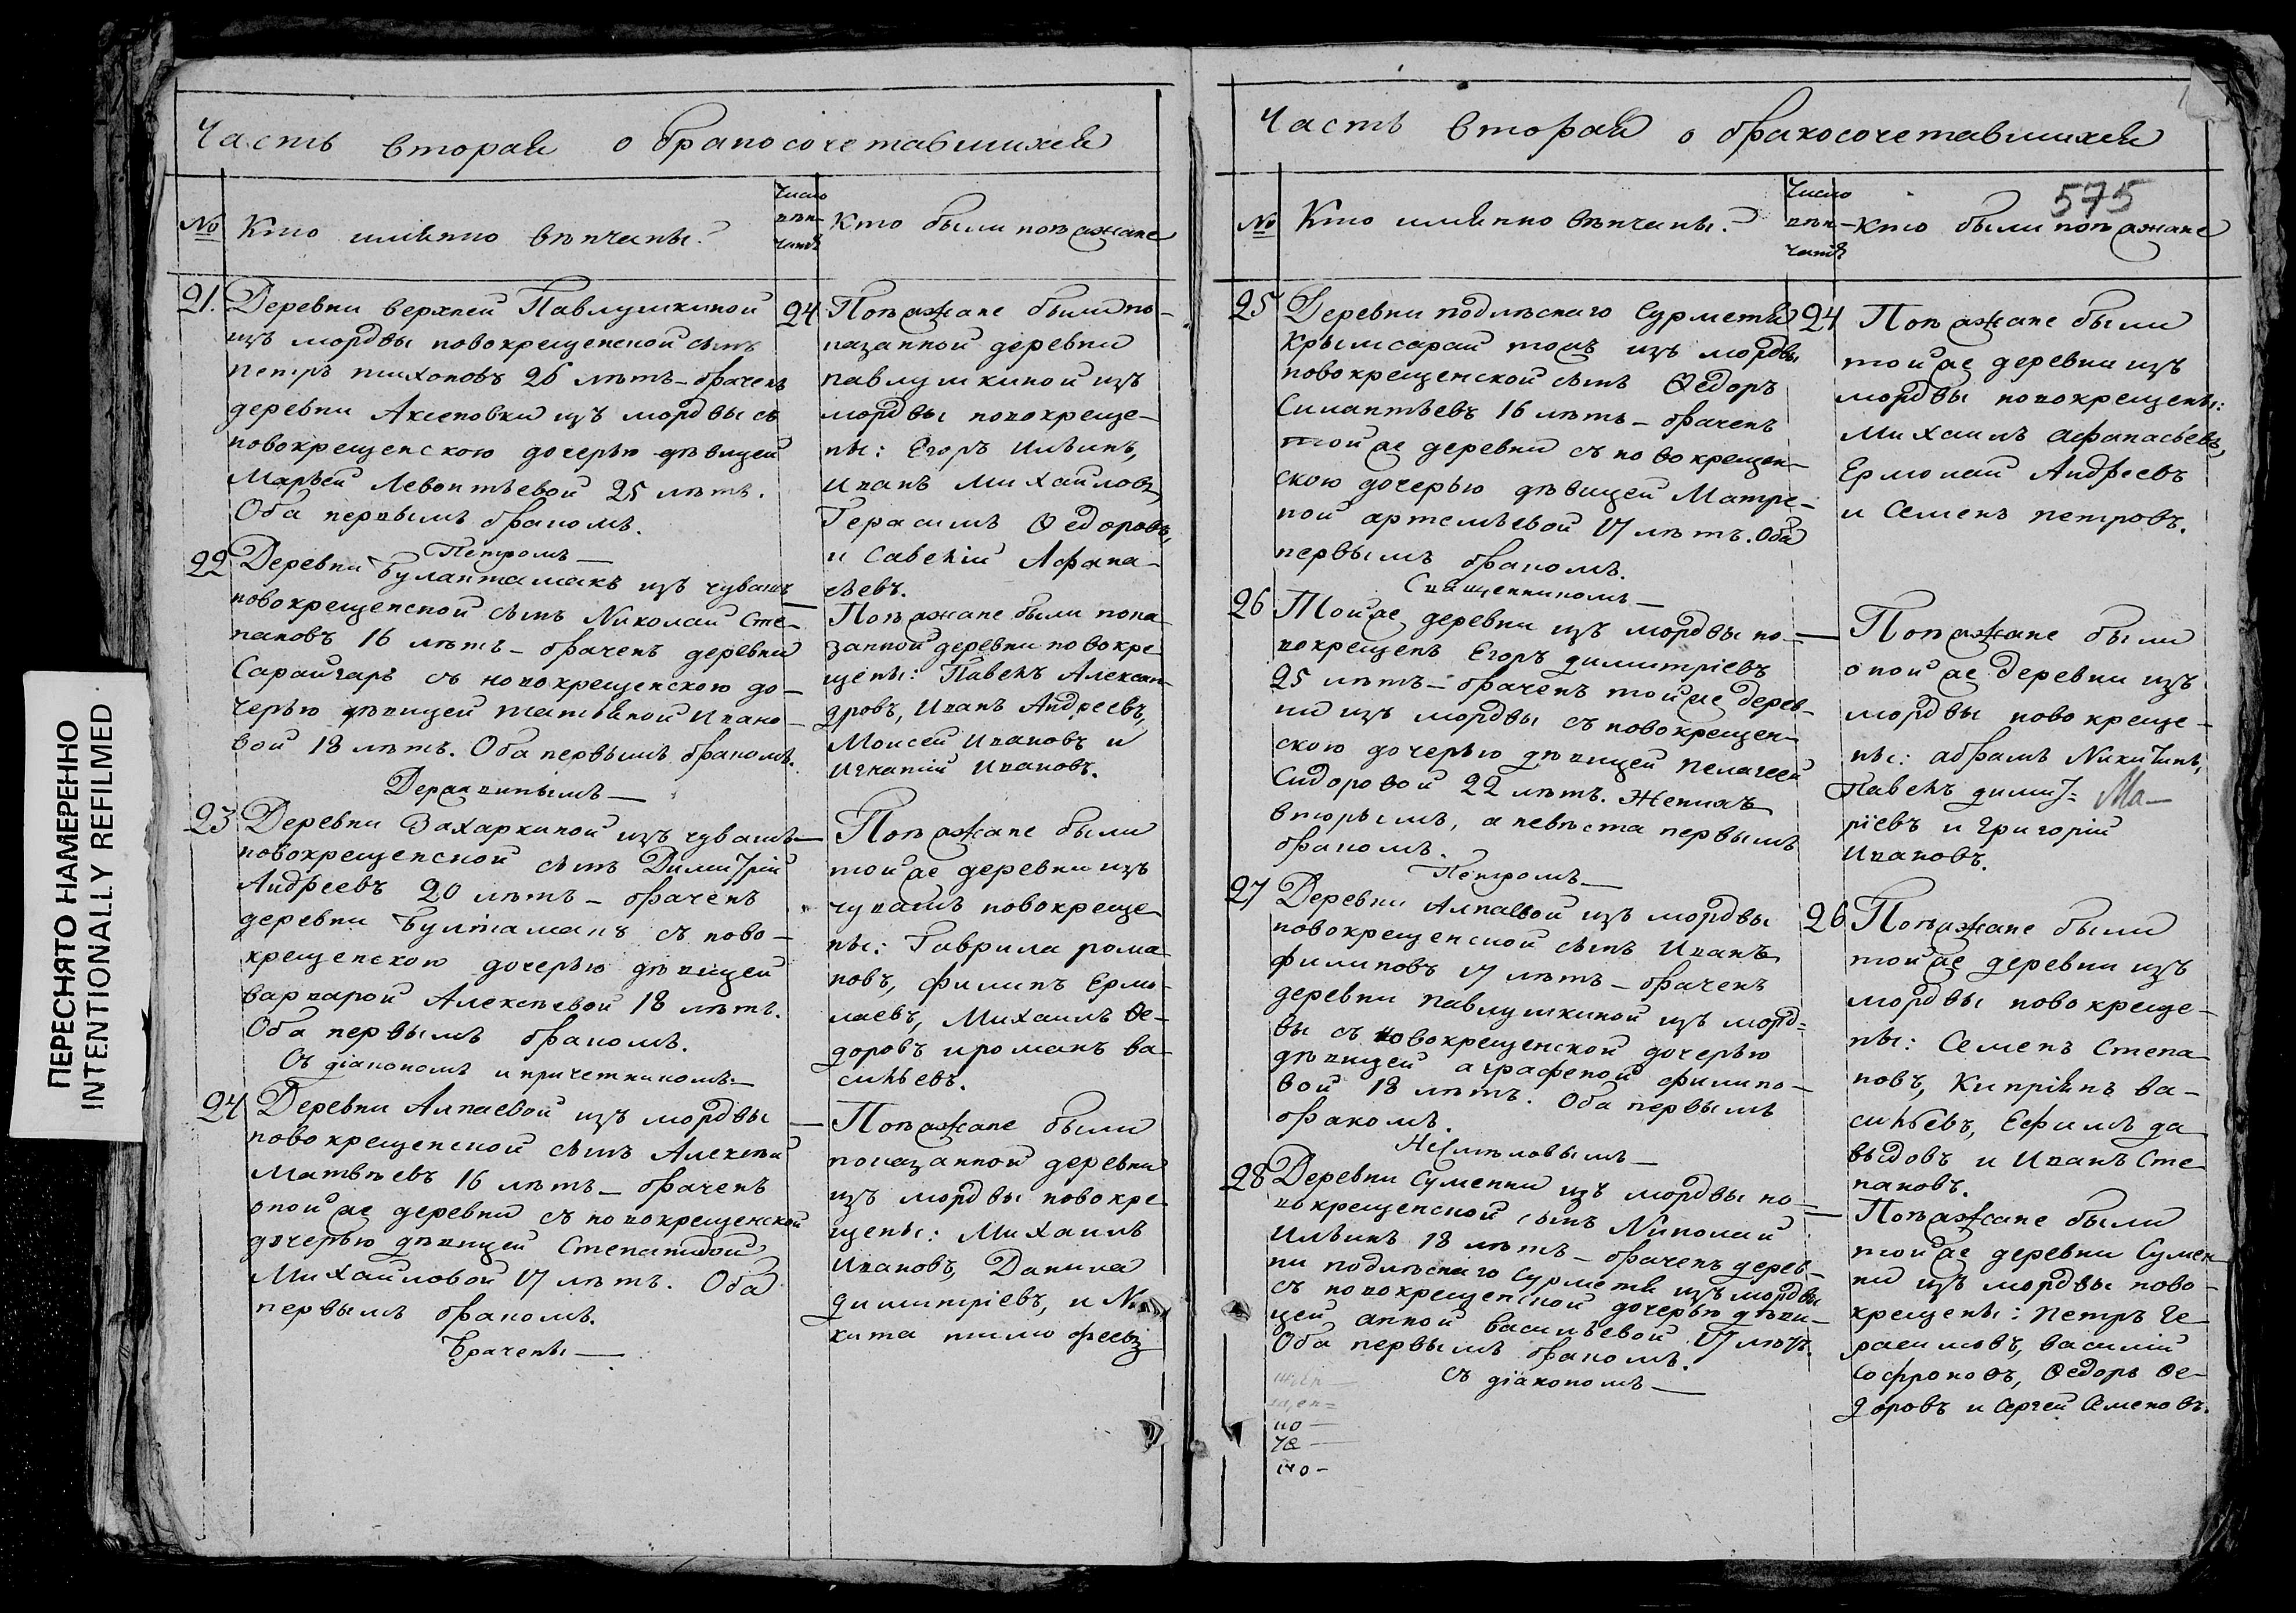 ПЕРЕСНЯТО НАМЕРЕННО
INTENTIONALLY REFILMED
Часть вторая о бракосочетавшихся
№
Кто имянно вѣнчаны?
Число
вѣн-
чанія
Кто были поѣзжане
21.
Деревни верхней Павлушкиной
изъ мордвы новокрещенской сынъ
петръ тихоновъ 26 лѣтъ – браченъ
деревни Аксеновки изъ мордвы съ
новокрещенскою дочерью дѣвицей
Марьей Левонтьевой 25 лѣтъ.
Оба первымъ бракомъ.
Петромъ —
24
Поѣзжане были по-
казанной деревни
павлушкиной изъ
мордвы новокреще-
ны: Егоръ Ильинъ,
Иванъ Михайловъ,
Герасимъ Ѳедоровъ,
и Савелій Афана-
сьевъ.
22
Деревни Булантамакъ изъ чувашъ
новокрещенской сынъ Николай Сте-
пановъ 16 лѣтъ – браченъ деревни
Сарайгаръ съ новокрещенскою до-
черью дѣвицей татьяной Ивано-
вой 18 лѣтъ. Оба первымъ бракомъ.
Державинымъ —
—
Поѣзжане были пока-
занной деревни новокре-
щены: Павелъ Алексан-
дровъ, Иванъ Андреевъ,
Моисей Ивановъ и
Игнатій Ивановъ.
23
Деревни Захаркиной изъ чувашъ
новокрещенской сынъ Димитрій
Андреевъ 20 лѣтъ – браченъ
деревни Бултамакъ съ ново-
крещенскою дочерью дѣвицей
варварой Алексѣевой 18 лѣтъ.
Оба первымъ бракомъ.
Съ діакономъ и причетникомъ. —
—
Поѣзжане были
той же деревни изъ
чувашъ новокреще-
ны: Гаврила рома-
новъ, филипъ Ермо-
лаевъ, Михаилъ Ѳе-
доровъ и романъ ва-
сильевъ.
24
Деревни Алпаевой изъ мордвы
новокрещенской сынъ Алексѣй
Матвѣевъ 16 лѣтъ – браченъ
оной же деревни съ новокрещенской
дочерью дѣвицей Степанидой
Михайловой 17 лѣтъ. Оба
первымъ бракомъ.
Брачены —
—
Поѣзжане были
показанной деревни
изъ мордвы новокре-
щены: Михаилъ
Ивановъ, Данила
димитріевъ, и Ни-
кита тимофеевъ
Часть вторая о бракосочетавшихся
575
№
Кто имянно вѣнчаны?
Число
вѣн-
чанія
Кто были поѣзжане
25
Деревни подлѣснаго Сурметя
Крымсарай тожъ изъ мордвы
новокрещенской сынъ Ѳедоръ
Силантьевъ 16 лѣтъ – браченъ
той же деревни съ новокрещен-
скою дочерью дѣвицей Матре-
ной артемьевой 17 лѣтъ. Оба
первымъ бракомъ.
Священникомъ —
24
Поѣзжане были
той же деревни изъ
мордвы новокрещены:
Михаилъ афанасьевъ,
Ермолай Андреевъ
и Семенъ петровъ.
26
Той же деревни изъ мордвы но-
вокрещенъ Егоръ димитріевъ
25 лѣтъ – браченъ той же дерев-
ни изъ мордвы съ новокрещен-
скою дочерью дѣвицей пелагеей
Сидоровой 22 лѣтъ. Женихъ
вторымъ, а невѣста первымъ
бракомъ.
Петромъ —
—
Поѣзжане были
оной же деревни изъ
мордвы новокреще-
ны: абрамъ Никитинъ,
Павелъ димит=
ріевъ и Григорій
Ивановъ.
Ма—
27
Деревни Алпаевой изъ мордвы
новокрещенской сынъ Иванъ
филиповъ 17 лѣтъ – браченъ
деревни павлушкиной изъ морд=
вы съ новокрещенской дочерью
дѣвицей аграфеной филипо-
вой 18 лѣтъ. Оба первымъ
бракомъ.
Несмѣловымъ —
26
Поѣзжане были
той же деревни изъ
мордвы новокреще-
ны: Семенъ Степа-
новъ, Кипріянъ ва-
сильевъ, Ефимъ да
выдовъ и Иванъ Сте
пановъ.
28
Деревни Суменки изъ мордвы но-
вокрещенской сынъ Николай
Ильинъ 18 лѣтъ – браченъ дерев-
ни подлѣснаго Сурметя изъ мордвы
съ новокрещенской дочерью дѣви-
цей анной васильевой 17 лѣтъ.
Оба первымъ бракомъ.
Съ діакономъ —
—
Поѣзжане были
той же деревни Сумен
ки изъ мордвы ново-
крещены: петръ Ге
расимовъ, василій
Софроновъ, Ѳедоръ Ѳе-
доровъ и Сергей Семеновъ.